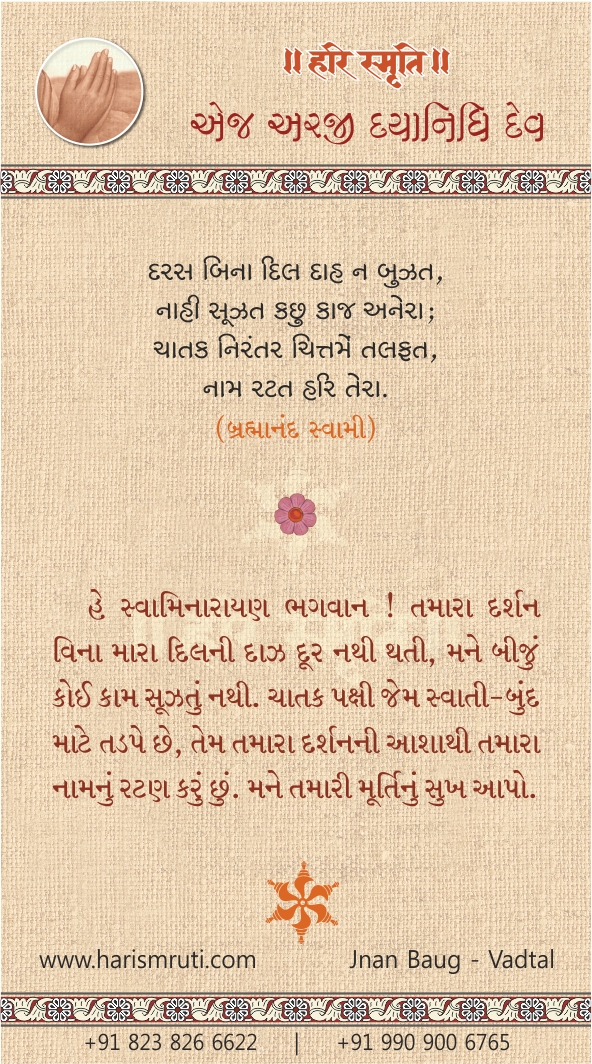 ॥ હરિ સ્મૃતિ ॥
એજ અરજી દયાનિધિ દેવ
દરસ બિના દિલ દાહ ન બુઝત,
નાહી સૂઝત કછુ કાજ અનેરા;
ચાતક નિરંતર ચિત્તમેં તલફત,
નામ રટત હરિ તેરા.
(બ્રહ્માનંદ સ્વામી)
હે સ્વામિનારાયણ ભગવાન ! તમારા દર્શન
વિના મારા દિલની દાઝ દૂર નથી થતી, મને બીજું
કોઈ કામ સૂઝતું નથી. ચાતક પક્ષી જેમ સ્વાતી-બુંદ
માટે તડપે છે, તેમ તમારા દર્શનની આશાથી તમારા
નામનું રટણ કરું છું. મને તમારી મૂર્તિનું સુખ આપો.
www.harismruti.com Jnan Baug - Vadtal
+91 823 826 6622 | +91 990 900 6765